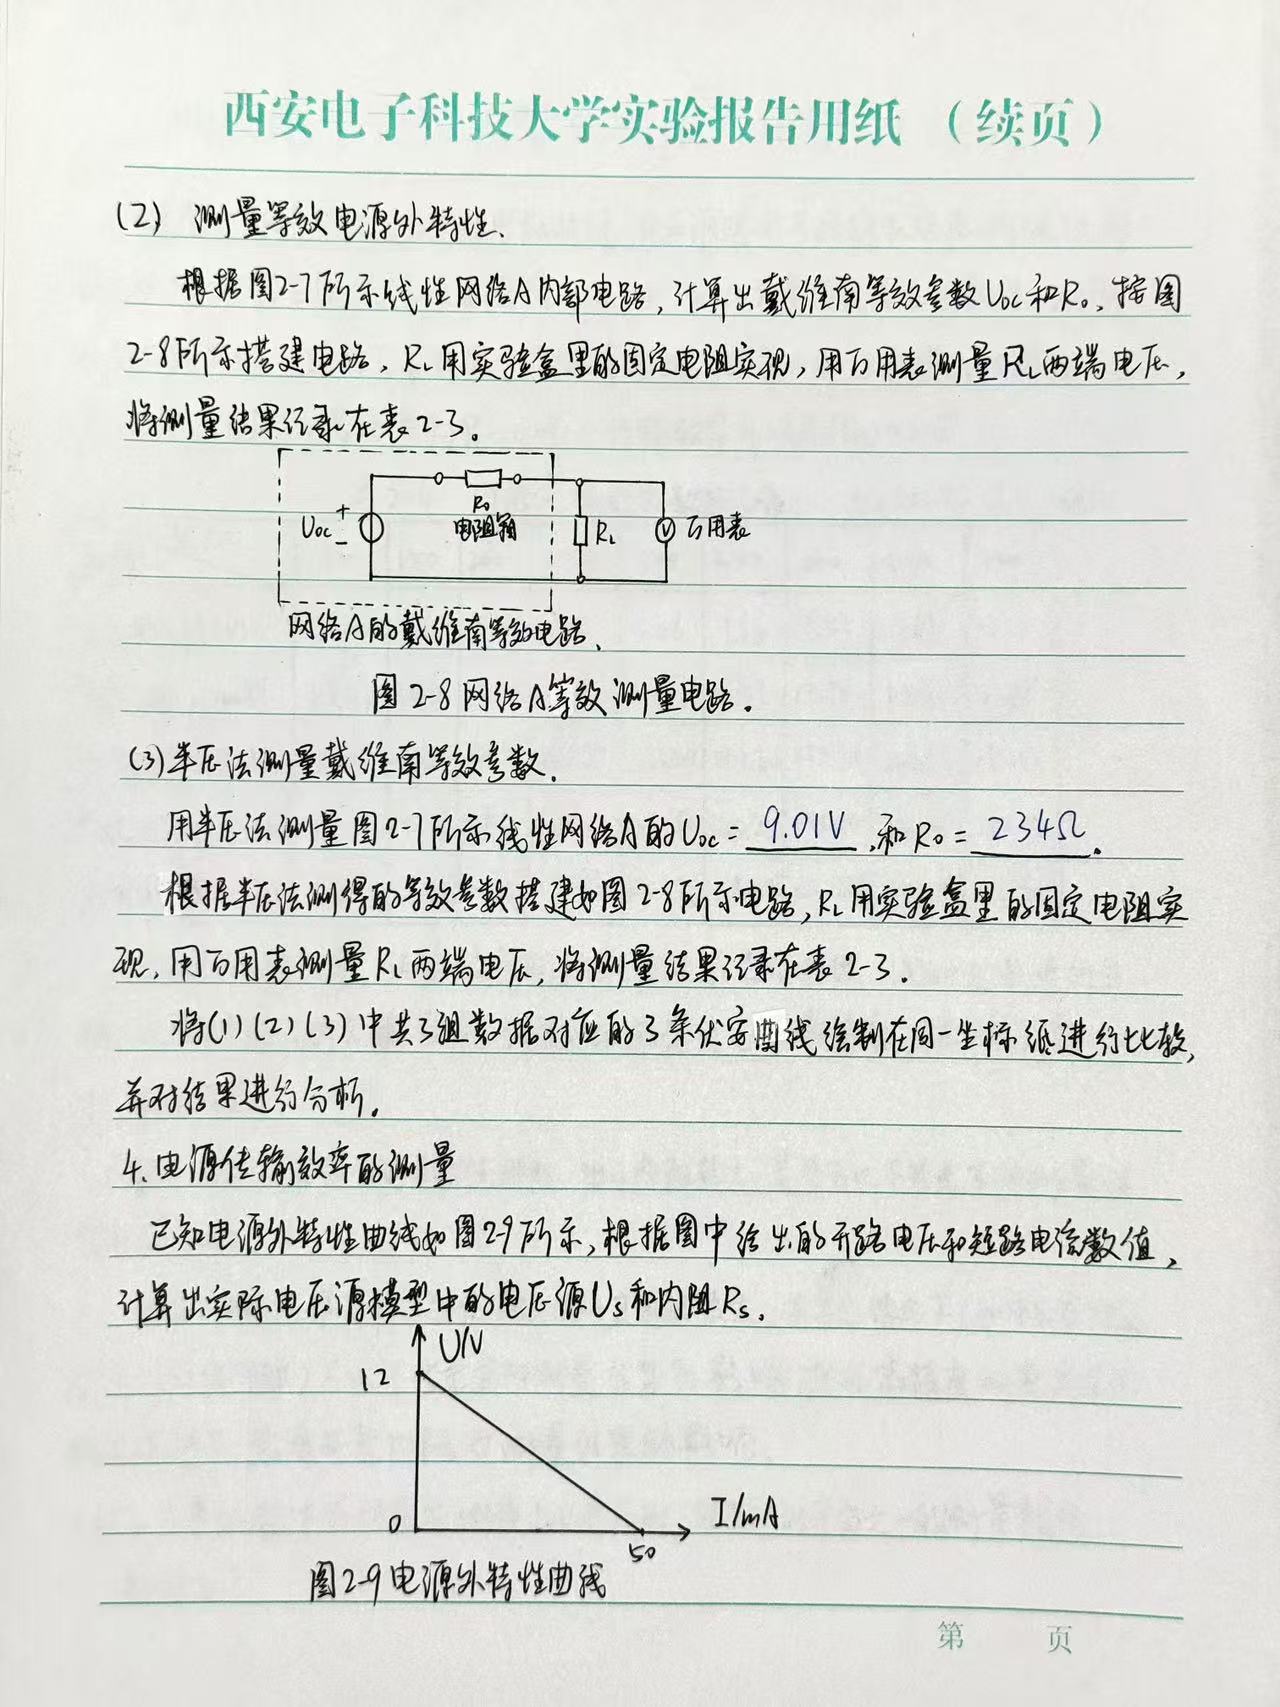 西安电子科技大学实验报告用纸 （续页）
(2) 测量等效电源外特性.
根据图2-7所示线性网络A内部电路，计算出戴维南等效参数Uoc和R₀. 按图
2-8所示搭建电路，RL用实验盒里的固定电阻实现，用万用表测量RL两端电压，
将测量结果记录在表2-3。
Uoc + - R₀ 电阻箱 RL V 万用表
网络A的戴维南等效电路.
图2-8 网络A等效测量电路.
(3)半压法测量戴维南等效参数.
用半压法测量图2-7所示线性网络A的Uoc = 9.01V ,和R₀ = 234Ω.
根据半压法测得的等效参数搭建如图2-8所示电路，RL用实验盒里的固定电阻实
现，用万用表测量RL两端电压，将测量结果记录在表2-3.
将(1)(2)(3)中共3组数据对应的3条伏安曲线绘制在同一坐标纸进行比较,
并对结果进行分析。
4.电源传输效率的测量
已知电源外特性曲线如图2-9所示，根据图中给出的开路电压和短路电流数值，
计算出实际电压源模型中的电压源Us和内阻Rs.
U/V
12
0
50
I/mA
图2-9 电源外特性曲线
第 页